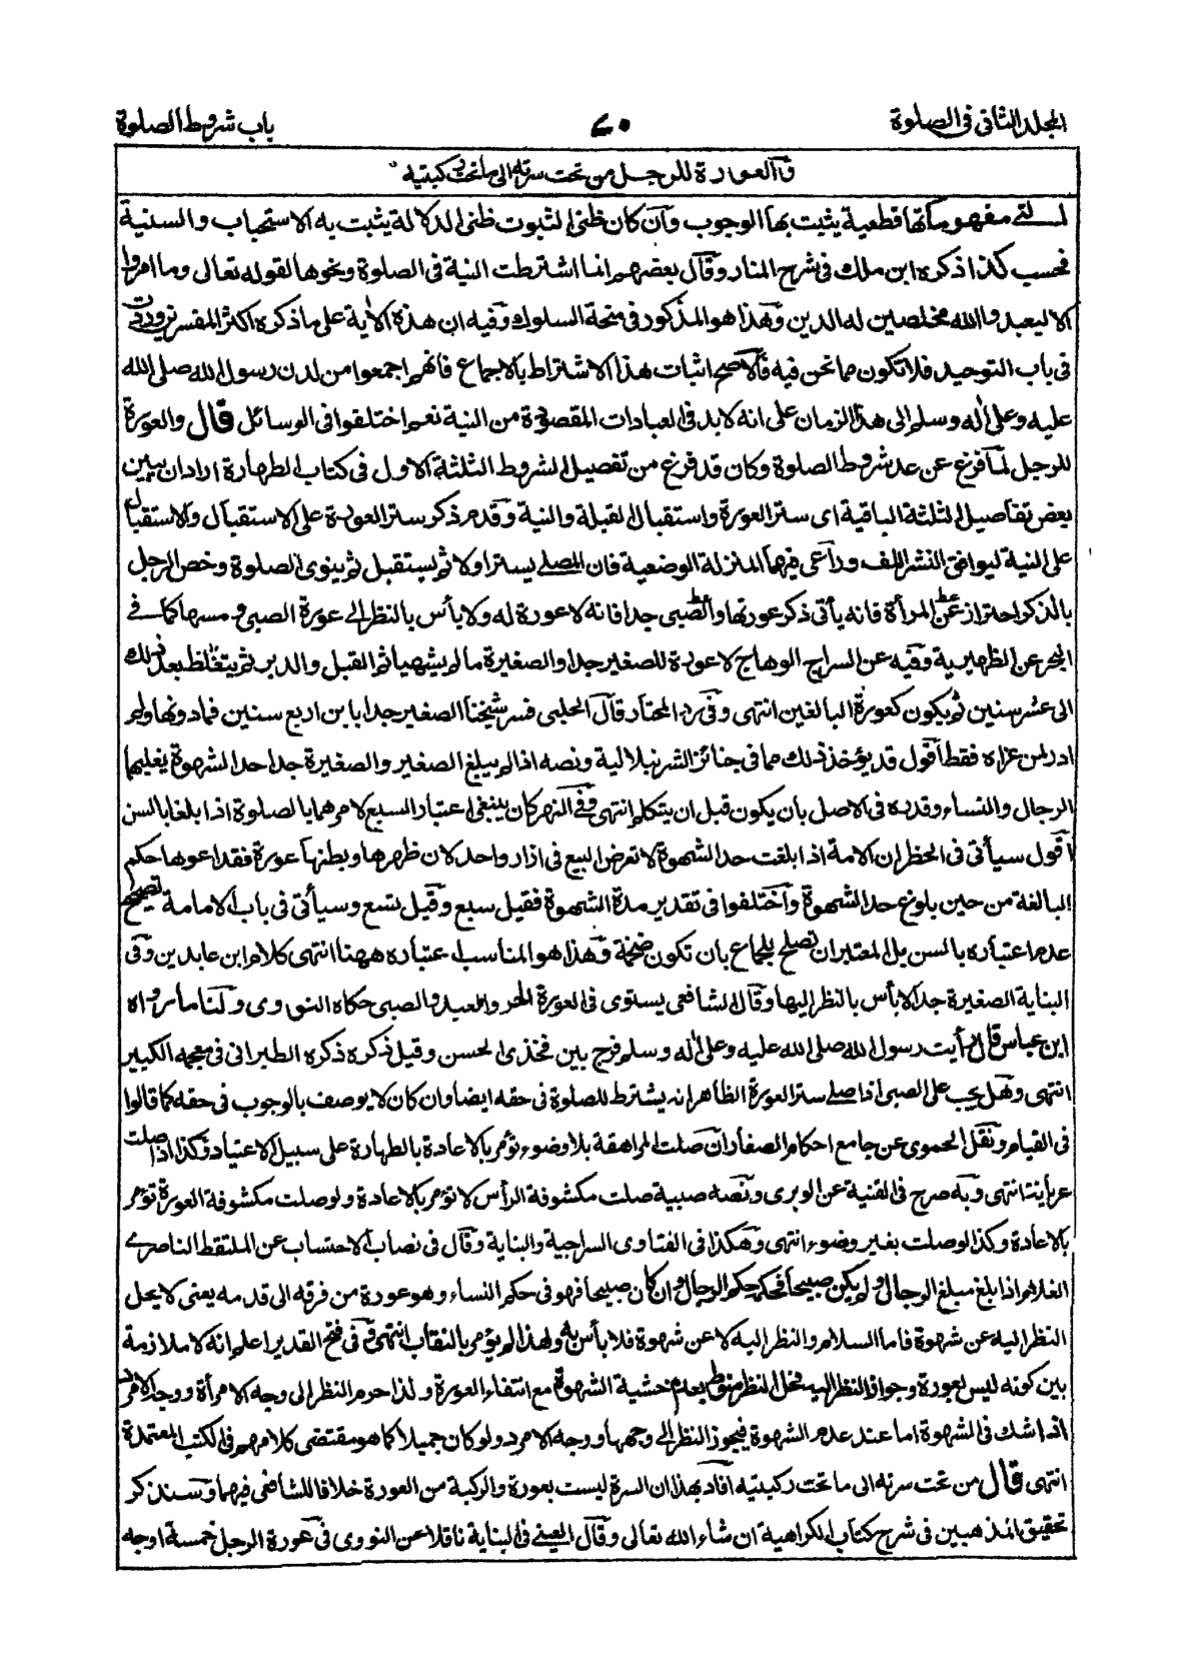 المجلد الثاني في الصلوة
٧٠
باب شروط الصلوة
والعورة للرجل من تحت سرته الى ما تحت ركبتيه
التے مفهوماتها قطعية يثبت بها الوجوب وان كان ظنى الثبوت ظنى الدلالة يثبت به الاستحباب والسنية
فحسب كذا ذكره ابن ملك فى شرح المنار وقال بعضهم انما اشترطت النية فى الصلوة ونحوها لقوله تعالى وما امروا
الا ليعبدوا الله مخلصين له الدين وهذا هو المذكور فى منحة السلوك وفيه ان هذه الاية على ما ذكره اكثر المفسرين وردت
فى باب التوحيد فلا تكون مما نحن فيه فالاصح اثبات هذا الاشتراط بالاجماع فانهم اجمعوا من لدن رسول الله صلى الله
عليه وعلى اله وسلم الى هذا الزمان على انه لابد فى العبادات المقصودة من النية نعم اختلفوا فى الوسائل قال والعورة
للرجل لما فرغ عن عد شروط الصلوة وكان قد فرغ من تفصيل الشروط الثلثة الاول فى كتاب الطهارة اراد ان يبين
بعض تفاصيل الثلثة الباقية اى ستر العورة واستقبال القبلة والنية وقدم ذكر ستر العورة على الاستقبال والاستقبال
على النية ليوافق النشر اللف وراعى فيهما المنزلة الوضعية فان المصلے يستر اولا ثم يستقبل ثم ينوى الصلوة وخص الرجل
بالذكر احترازا عن المرأة فانه يأتى ذكر عورتها وعن الصبى جدا فانه لا عورة له ولا بأس بالنظر الے عورة الصبى ومسها كما فے
البحر عن الظهيرية وفيه عن السراج الوهاج لا عورة للصغير جدا والصغيرة ما لم يشتهيا ثم القبل والدبر ثم يتغلظ بعد ذلك
الى عشر سنين ثم يكون كعورة البالغين انتهى وفى رد المحتار قال الحلبى فسر شيخنا الصغير جدا بابن اربع سنين فما دونها ولم
ادر لمن عزاه فقط اقول قد يؤخذ ذلك مما فى جنائز الشرنبلالية ونصه اذا لم يبلغ الصغير والصغيرة جدا حد الشهوة يغلهما
الرجال والنساء وقدره فى الاصل بان يكون قبل ان يتكلم انتهى وفى النهر كان ينبغى اعتبار السبع لامرهما بالصلوة اذا بلغا بالسن
اقول سيأتى فى الحظر ان الامة اذا بلغت حد الشهوة لا تعرض للبيع فى ازار واحد لان ظهرها وبطنها عورة فقد اعطوها حكم
البالغة من حين بلوغ حد الشهوة واختلفوا فى تقدير مدة الشهوة فقيل سبع وقيل تسع وسيأتى فى باب الامامة تصحيح
عدم اعتباره بالسن بل المعتبر ان تصلح للجماع بان تكون ضخمة وهذا هو المناسب اعتباره ههنا انتهى كلام ابن عابدين وفى
البناية الصغيرة جدا لا بأس بالنظر اليها وقال الشافعى يستوى فى العورة الحر والعبد والصبى حكاه النووى ولنا ما رواه
ابن عباس قال رأيت رسول الله صلى الله عليه وعلى اله وسلم فرج بين فخذى الحسن وقيل ذكره ذكره الطبرانى فى معجمه الكبير
انتهى وهل يجب على الصبى اذا صلے ستر العورة الظاهر انه يشترط للصلوة فى حقه ايضا وان كان لا يوصف بالوجوب فى حقه كما قالوا
فى القيام ونقل الحموى عن جامع احكام الصغار ان صلت المراهقة بلا وضوء تؤمر بالاعادة بالطهارة على سبيل الاعتياد وكذا اذا صلت
عريانة انتهى وبه صرح فى القنية عن الوبرى ونصه صبية صلت مكشوفة الرأس لا تؤمر بالاعادة ولو صلت مكشوفة العورة تؤمر
بالاعادة وكذا لو صلت بغير وضوء انتهى وهكذا فى الفتاوى السراجية والبناية وقال فى نصاب الاحتساب عن الملتقط الناصرے
الغلام اذا بلغ مبلغ الرجال ولم يكن صبيحا فحكمه حكم الرجال وان كان صبيحا فهو فى حكم النساء وهو عورة من فرقه الى قدمه يعنى لا يحل
النظر اليه عن شهوة فاما السلام والنظر اليه لا عن شهوة فلا بأس به ولهذا لم يؤمر بالنقاب انتهى وفى فتح القدير اعلم انه لا ملازمة
بين كونه ليس بعورة وجواز النظر اليه فحل النظر منوط بعدم خشية الشهوة مع انتفاء العورة ولذا حرم النظر الى وجه الامرأة ووجه الامرد
اذا شك فى الشهوة اما عند عدم الشهوة فيجوز النظر الے وجهها ووجه الامرد ولو كان جميلا كما هو مقتضى كلامهم فى الكتب المعتمدة
انتهى قال من تحت سرته الى ما تحت ركبتيه افاد بهذا ان السرة ليست بعورة والركبة من العورة خلافا للشافعى فيهما وسنذكر
تحقيق المذهبين فى شرح كتاب الكراهية ان شاء الله تعالى وقال العينے فى البناية ناقلا عن النووى فى عورة الرجل خمسة اوجه